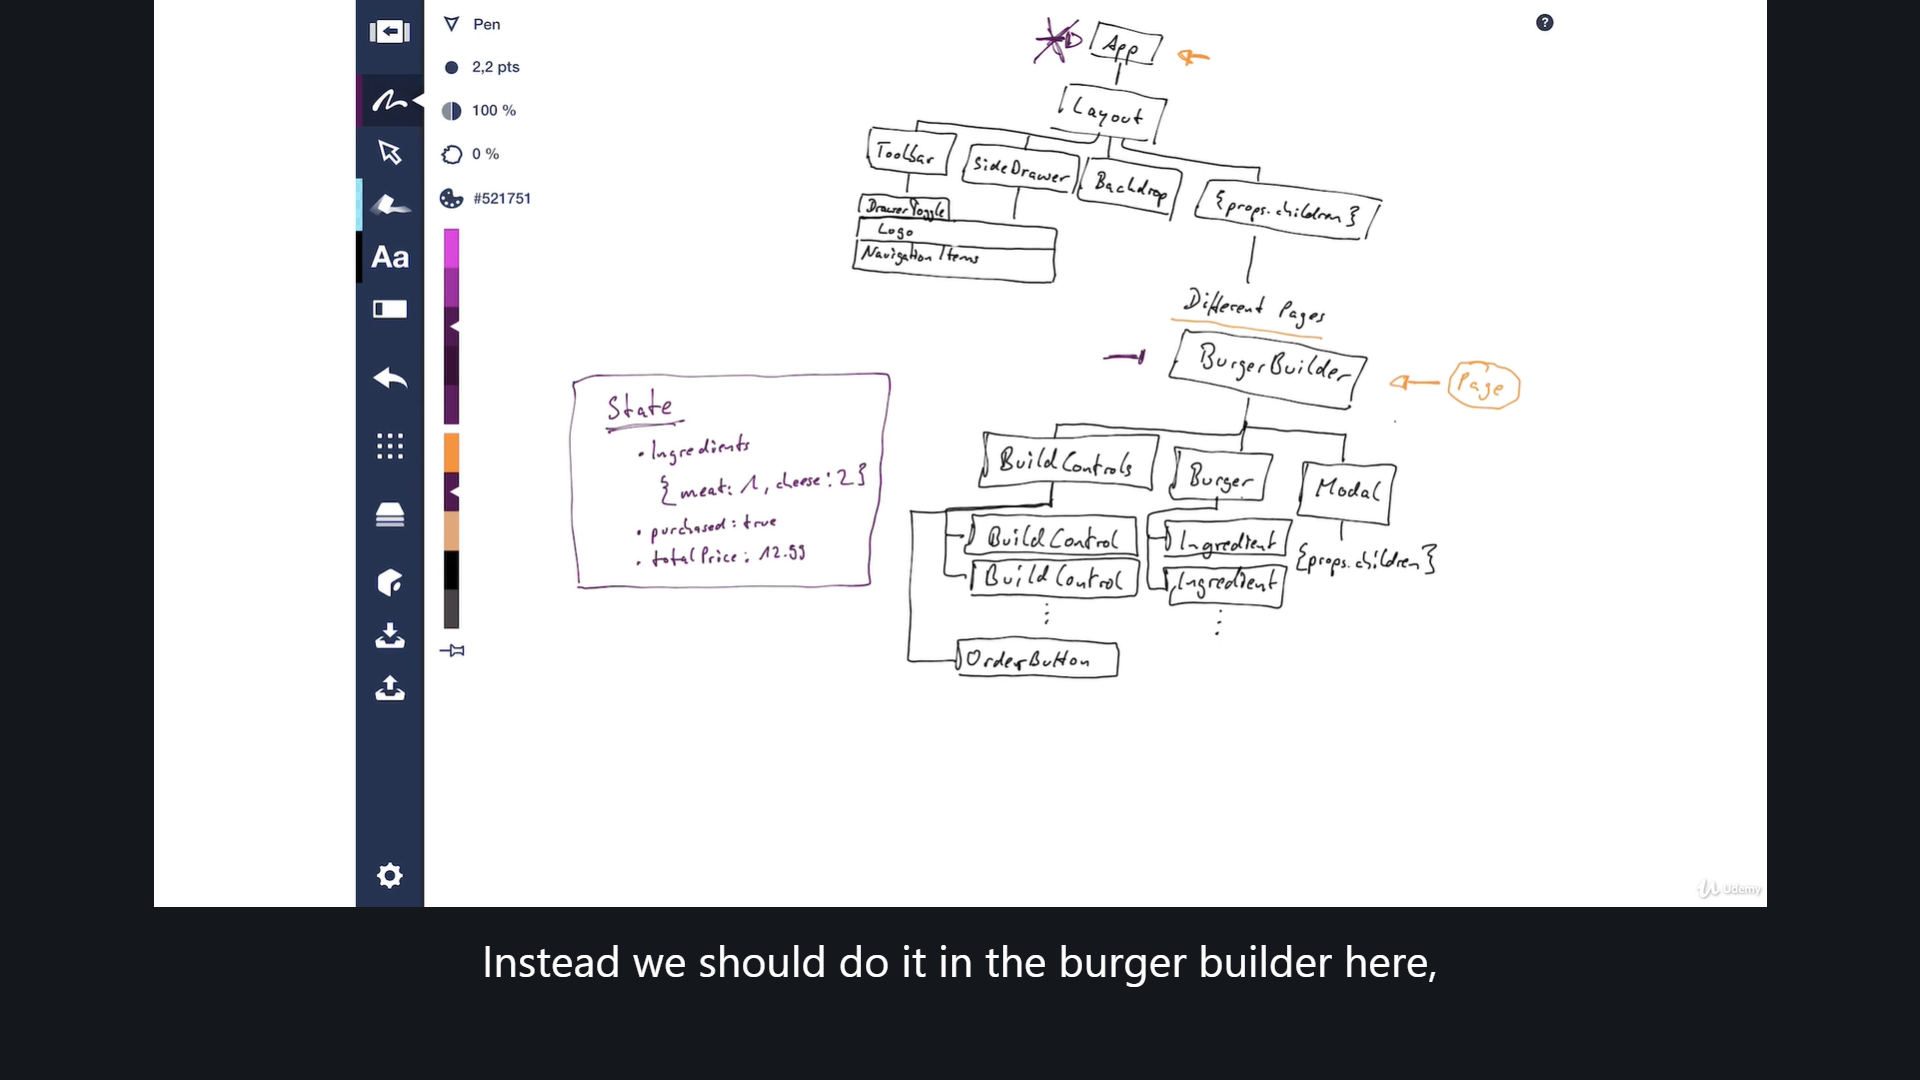 Pen
2,2 pts
100 %
0 %
#521751
Aa
?
App
Layout
Toolbar
SideDrawer
Backdrop
{props.children}
DrawerToggle
Logo
Navigation Items
Different Pages
BurgerBuilder
Page
State
• Ingredients
{meat: 1, cheese: 2}
• purchased: true
• totalPrice: 12.99
BuildControls
Burger
Modal
BuildControl
BuildControl
⋮
Ingredient
Ingredient
⋮
{props.children}
OrderButton
Udemy
Instead we should do it in the burger builder here,